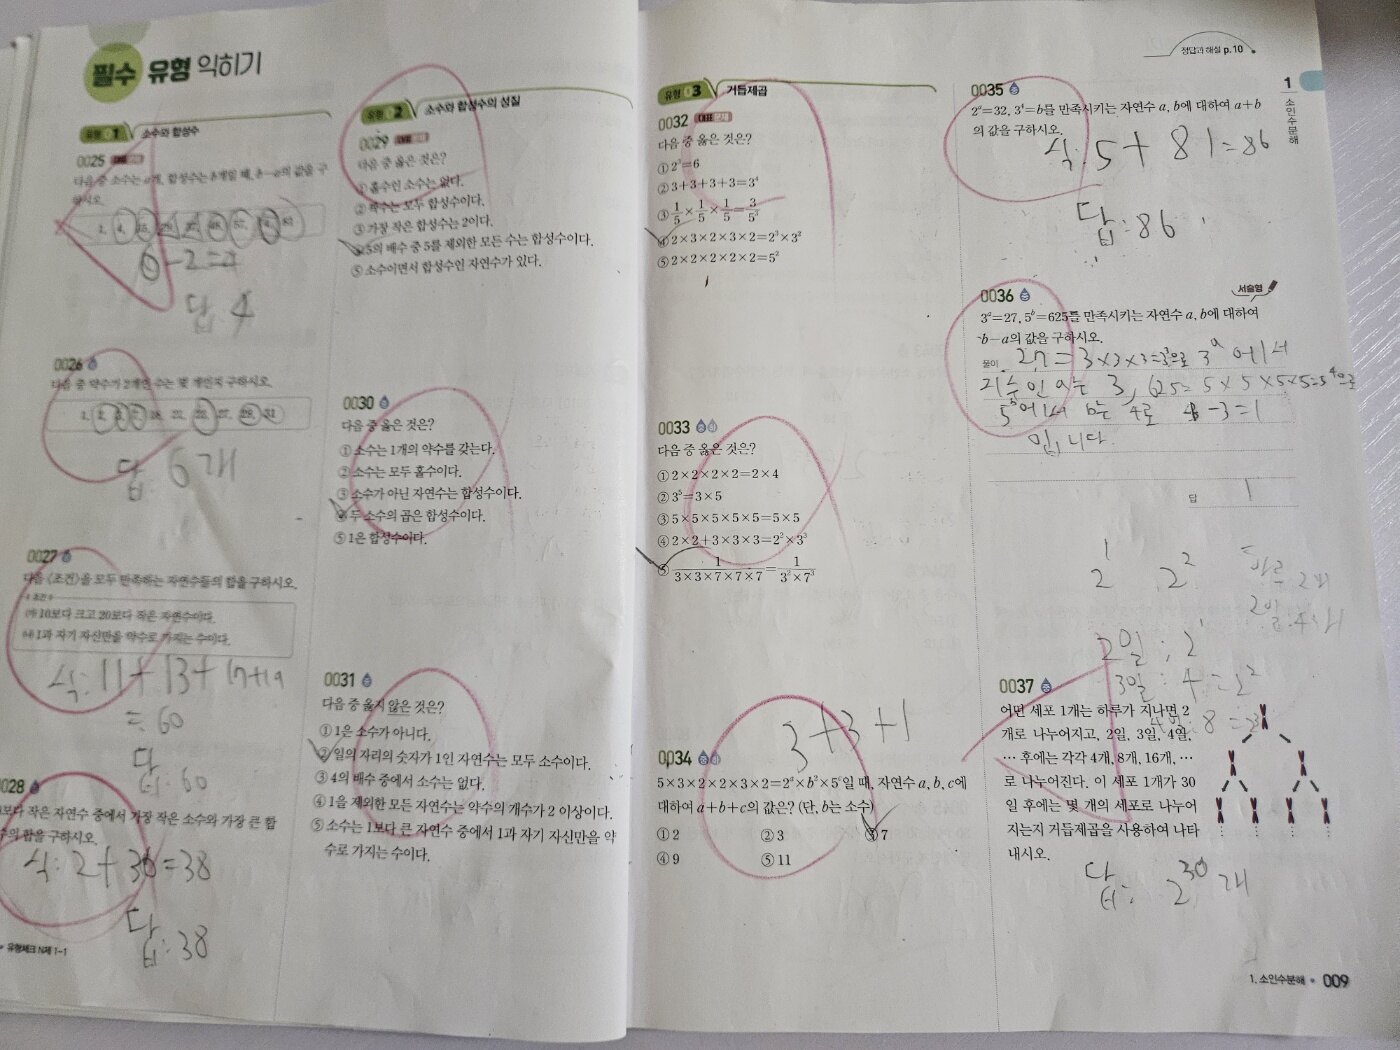 필수 유형 익히기
유형 01 소수와 합성수
0025 대표문제
다음 중 소수는 a개, 합성수는 b개일 때, b-a의 값을 구
하시오.
6-2=4
답 4
0026
다음 중 약수가 2개인 수는 몇 개인지 구하시오.
답: 6개
0027
다음 <조건>을 모두 만족하는 자연수들의 합을 구하시오.
조건
㈎ 10보다 크고 20보다 작은 자연수이다.
㈏ 1과 자기 자신만을 약수로 가지는 수이다.
식: 11+13+17+19
=60
답: 60
0028
보다 작은 자연수 중에서 가장 작은 소수와 가장 큰 합
수의 합을 구하시오.
식: 2+36=38
답: 38
유형체크 N제 1-1
유형 02 소수와 합성수의 성질
0029 대표문제
다음 중 옳은 것은?
① 홀수인 소수는 없다.
② 짝수는 모두 합성수이다.
③ 가장 작은 합성수는 2이다.
④ 5의 배수 중 5를 제외한 모든 수는 합성수이다.
⑤ 소수이면서 합성수인 자연수가 있다.
0030
다음 중 옳은 것은?
① 소수는 1개의 약수를 갖는다.
② 소수는 모두 홀수이다.
③ 소수가 아닌 자연수는 합성수이다.
④ 두 소수의 곱은 합성수이다.
⑤ 1은 합성수이다.
0031
다음 중 옳지 않은 것은?
① 1은 소수가 아니다.
② 일의 자리의 숫자가 1인 자연수는 모두 소수이다.
③ 4의 배수 중에서 소수는 없다.
④ 1을 제외한 모든 자연수는 약수의 개수가 2 이상이다.
⑤ 소수는 1보다 큰 자연수 중에서 1과 자기 자신만을 약
수로 가지는 수이다.
유형 03 거듭제곱
0032 대표문제
다음 중 옳은 것은?
① 2³=6
② 3+3+3+3=3⁴
③ 1/5×1/5×1/5=3/5³
④ 2×3×2×3×2=2³×3²
⑤ 2×2×2×2×2=5²
0033
다음 중 옳은 것은?
① 2×2×2×2=2×4
② 3⁵=3×5
③ 5×5×5×5×5=5×5
④ 2×2+3×3×3=2²×3³
⑤ 1/(3×3×7×7×7)=1/(3²×7³)
3+3+1
0034
5×3×2×2×3×2=2ᵃ×b²×5ᶜ일 때, 자연수 a, b, c에
대하여 a+b+c의 값은? (단, b는 소수)
① 2 ② 3 ③ 7
④ 9 ⑤ 11
정답과 해설 p.10
0035
2ᵃ=32, 3⁴=b를 만족시키는 자연수 a, b에 대하여 a+b
의 값을 구하시오.
식: 5+81=86
답: 86
0036 서술형
3ᵃ=27, 5ᵇ=625를 만족시키는 자연수 a, b에 대하여
b-a의 값을 구하시오.
풀이 27=3×3×3=3³으로 3ᵃ에서
지수인 a는 3, 625=5×5×5×5=5⁴으로
5ᵇ에서 b는 4로 4-3=1
입니다.
답 1
2¹ 2²
하루: 2개
2일: 4개
2일: 2¹
3일: 4=2²
4일: 8=2³
0037
어떤 세포 1개는 하루가 지나면 2
개로 나누어지고, 2일, 3일, 4일,
… 후에는 각각 4개, 8개, 16개, …
로 나누어진다. 이 세포 1개가 30
일 후에는 몇 개의 세포로 나누어
지는지 거듭제곱을 사용하여 나타
내시오.
답: 2³⁰개
1
소인수분해
1. 소인수분해 • 009